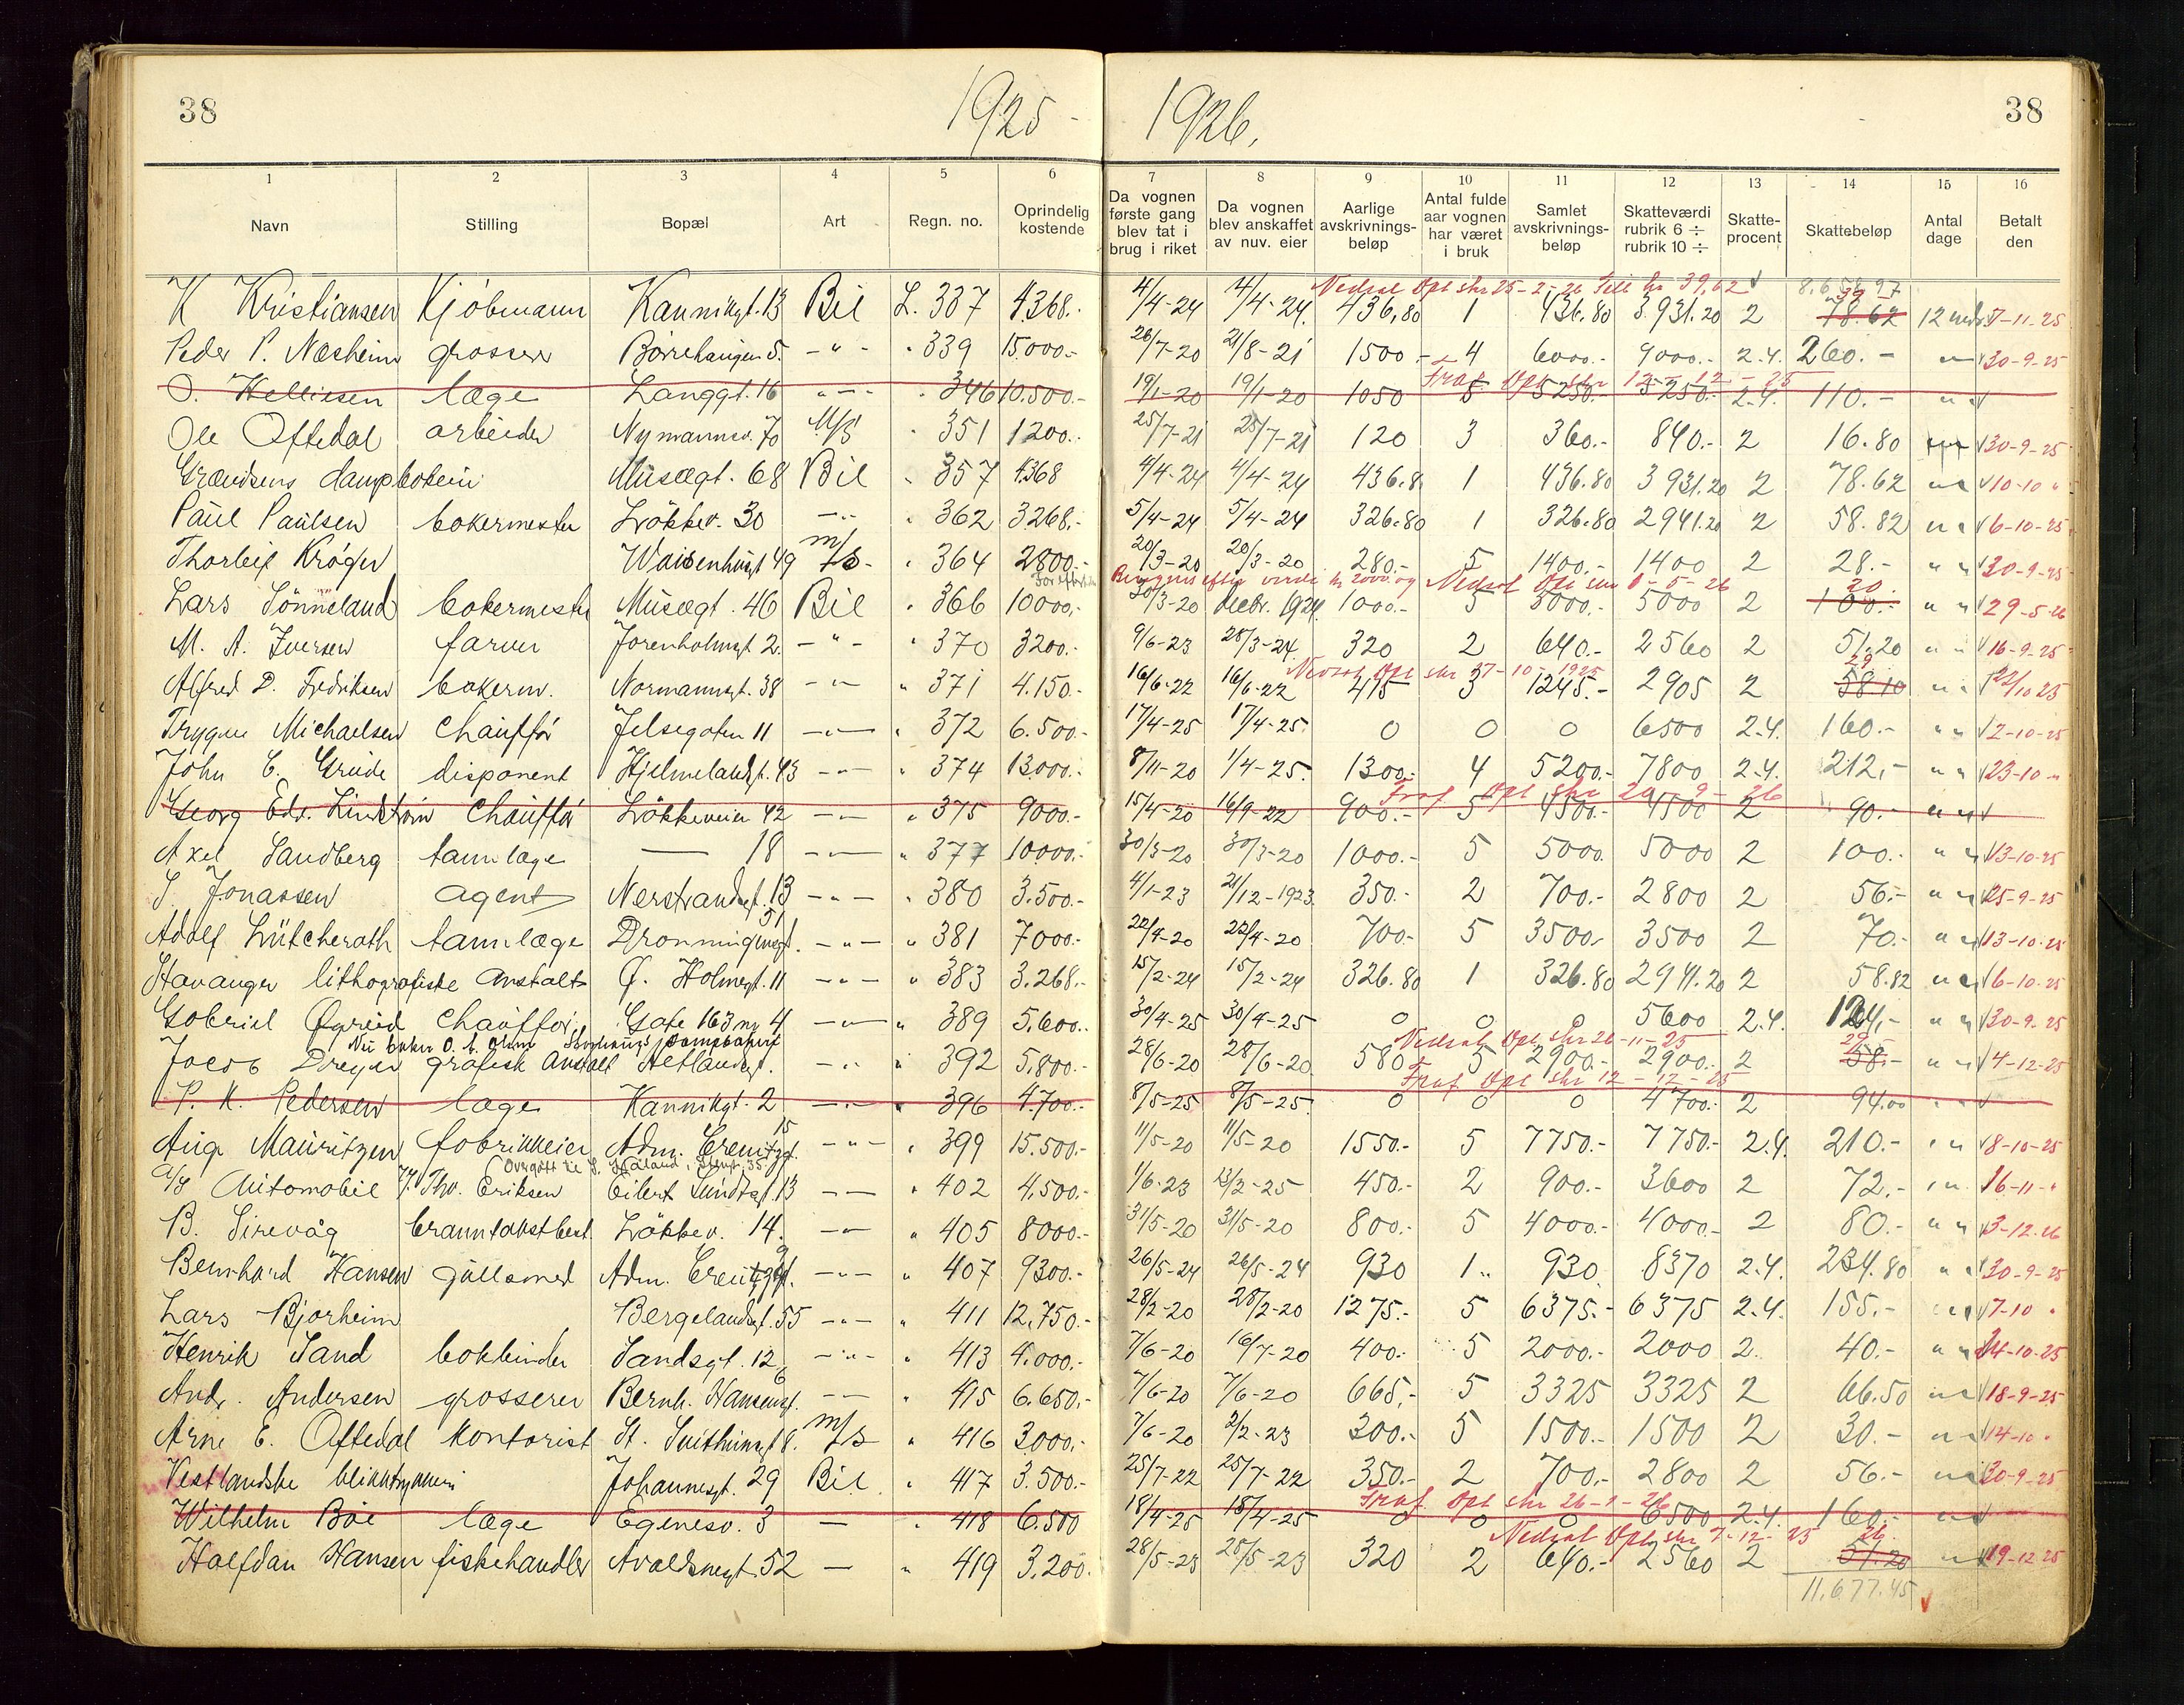 38 1925 - 1926. 38
1 2 3 4 5 6 7 8 9 10 11 12 13 14 15 16
Navn Stilling Bopæl Art Regn. no. Oprindelig kostende Da vognen første gang blev tat i brug i riket Da vognen blev anskaffet av nuv. eier Aarlige avskrivnings-beløp Antal fulde aar vognen har været i bruk Samlet avskrivnings-beløp Skatteværdi rubrik 6 ÷ rubrik 10 ÷ Skatte-procent Skattebeløp Antal dage Betalt den
Nedsat Opl skr 25-2-26 till kr 39,62 8.658.97
K Kristiansen Kjöbmann Kannikgt. 13 Bil L. 337 4368.- 4/4-24 4/4-24 436,80 1 436.80 3.931.20 2 78.62 39 12 mdr 7-11-25
Peder P. Næsheim grosserer Börrehaugen 5. -"- " 339 15.000.- 26/7-20 21/8-21 1500.- 4 6000.- 9000.- 2.4. 260.- 30-9-25
Fraf. Opl skr 12-12-25
O. Helliesen læge Langgt. 16 -"- " 346 10.500.- 19/1-20 19/1-20 1050 5 5250.- 5250.- 2.4. 110.-
Ole Oftedal arbeider Nymannsv. 70 M/S " 351 1200.- 25/7-21 25/7-21 120 3 360.- 840.- 2 16.80 30-9-25
Grændsens dampbakeri Musægt. 68 Bil " 357 4368 4/4-24 4/4-24 436.8 1 436.80 3931.20 2 78.62 10-10 "
Paul Paulsen bakermester Lökkev. 30 -"- " 362 3268.- 5/4-24 5/4-24 326.80 1 326.80 2941.20 2 58.82 6-10-25
Thorleif Kröger Waisenhusgt 49 m/s - " 364 2800.- 20/3-20 20/3-20 280.- 5 1400.- 1400 2 28.- 30-9-25
efter værdi kr 2000 og Nedsat Opl skr 1-5-26
Lars Sönneland bakermester Musægt. 46 Bil " 366 10000.- 30/3-20 Decbr. 1924 1000.- 5 5000.- 5000 2 100.- 20 29-5-26
M. A. Iversen farver Jorenholmgt 2. -"- " 370 3200.- 9/6-23 28/3-24 320 2 640.- 2560 2 51.20 16-9-25
Nedsat Opl skr 37-10-1925
Alfred D. Fredriksen bakerm. Normannsgt. 38 -"- " 371 4.150.- 16/6-22 16/6-22 415 3 1245.- 2905 2 58.10 29 22/10 25
Trygve Michaelsen Chaufför Jelsegaten 11 -"- " 372 6.500.- 17/4-25 17/4-25. 0 0 0 6500 2.4. 160.- 2-10-25
John E. Grude disponent Hjelmelandsgt. 43 -"- " 374 13000.- 8/11-20 1/4-25. 1300.- 4 5200.- 7800 2.4. 212,- 23-10 "
Fraf Opl skr 20-9-26
Georg Edv. Lindström Chaufför Lökkeveien 42 -"- " 375 9000.- 15/4-20 16/9-22 900.- 5 4500.- 4500 2 90.-
Axel Sandberg tannlæge — 18 -"- " 377 10000.- 30/3-20 30/3-20 1000.- 5 5000 5000 2 100.- 13-10-25
S. Jonassen agent Nerstrandsgt. 13 -"- " 380 3.500.- 4/1-23 21/12-1923 350.- 2 700.- 2800 2 56.- 25-9-25
Adolf Lütcherath tannlæge Dronningensgt. 51 -"- " 381 7000.- 22/4-20 22/4-20 700.- 5 3500.- 3500 2 70.- 13-10-25
Stavanger lithografiske Anstalt Ø. Holmegt. 11 -"- " 383 3.268.- 15/2-24 15/2-24 326.80 1 326.80 2941.20 2 58.82 6-10-25
Gabriel Øgreid Chaufför Gate 163 nr 4 -"- " 389 5.600.- 30/4-25 30/4-25 0 0 0 5600 2.4. 124.- 30-9-25
Nedsat Opl skr 26-11-25
Jacob Dreyer grafisk Anstalt Hetlandsgt. -"- " 392 5.800.- 28/6-20 28/6-20 580 5 2900.- 2900.- 2 58.- 29 4-12-25
Fraf Opl skr 12-12-25
P. K. Pedersen læge Kannikgt. 2 -"- " 396 4.700.- 8/5-25 8/5-25. 0 0 0 4700.- 2 94.00
Aug. Mauritzen fabrikkeier Adm. Creutzgt. 15 -"- " 399 15.500.- 11/5-20 11/5-20 1550.- 5 7750.- 7750.- 2.4. 210.- 8-10-25
Overgått til S. Håland,
A/S Automobil T. Tho. Eriksen Eilert Sundtsgt. 13 -"- " 402 4.500.- 1/6-23 23/2-25 450.- 2 900.- 3600 2 72.- 16-11-"
B. Sirevåg branntakstbest. Lökkev. 14. -"- " 405 8000.- 31/5-20 31/5-20 800.- 5 4000.- 4000.- 2 80.- 3-12-26
Bernhard Hansen gullsmed Adm. Creutzgt. 9 -"- " 407 9300.- 26/5-24 26/5-24 930 1 930 8370 2.4. 234.80 30-9-25
Lars Bjorheim Bergelandsgt. 55 -"- " 411 12.750.- 28/2-20 28/2-20 1275.- 5 6375.- 6375 2.4. 155.- 7-10 "
Henrik Sand bokbinder Sandsgt. 12 -"- " 413 4.000.- 7/6-20 16/7-20 400.- 5 2000.- 2000 2. 40.- 14-10-25
Andr. Andersen grosserer Bernh. Hansensgt. 6 -"- " 415 6.650.- 7/6-20 7/6-20 665,- 5 3325 3325 2 66.50 18-9-25
Arne E. Oftedal Kontorist St. Svithunsgt 8. m/s " 416 3000.- 7/6-20 2/2-23 300.- 5 1500.- 1500 2 30.- 14-10 "
Vestlandske blikktrykkeri Johannesgt. 29 Bil " 417 3.500.- 25/7-22 25/7-22 350.- 2 700.- 2800 2 56.- 30-9-25
Fraf. Opl skr 26-1-26
Wilhelm Böe læge Egenesv. 3 — " 418 6.500 18/4-25 18/4-25 0 0 0 6500 2.4. 160.-
Nedsat Opl skr 7-12-25
Halfdan Hansen fiskehandler Avaldsnesgt. 52 — " 419 3.200. 28/5-23 28/5-23 320 2 640.- 2560 2 51.20 26 19-12-25
11.677.45